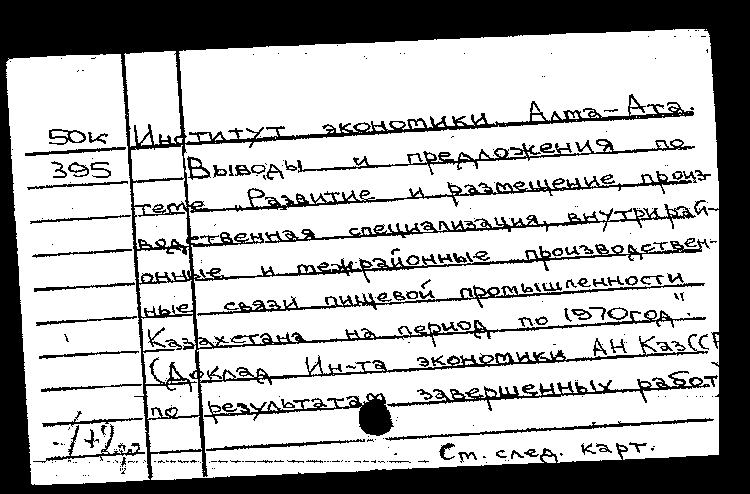 50к Институт экономики. Алма-Ата.
395 Выводы и предложения по
теме „Развитие и размещение, произ-
водственная специализация, внутрирай-
онные и межрайонные производствен-
ные связи пищевой промышленности
Казахстана на период по 1970 год".
(Доклад Ин-та экономики АН КазССР
по результатам завершенных работ
Ст. след. карт.